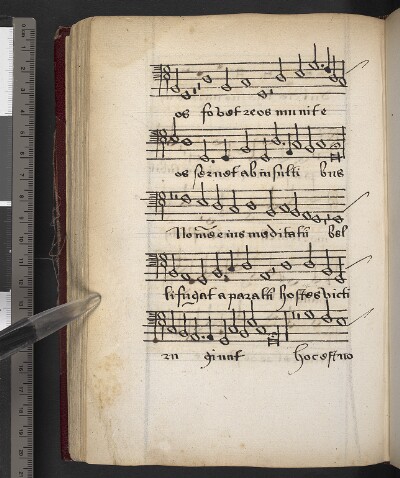 os fovet reos munit e
os servet ab insulti bus
No mē eius meditatū bel
li fugat aparatū hostes victi
rn giunt hoc est no